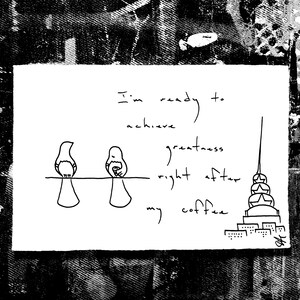 I'm ready to
achieve
greatness
right after
my coffee